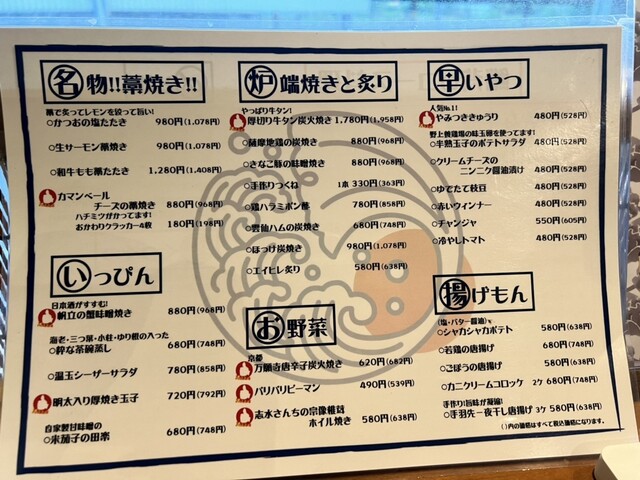 名物!!藁焼き!!
藁で炙ってレモンを絞って旨い!
○かつおの塩たたき 980円(1,078円)
○生サーモン藁焼き 980円(1,078円)
○和牛もも藁たたき 1,280円(1,408円)
カマンベール
チーズの藁焼き 880円(968円)
ハチミツかかってます!
おかわりクラッカー4枚 180円(198円)
いっぴん
日本酒がすすむ!
帆立の蟹味噌焼き 880円(968円)
海老・三つ葉・小柱・ゆり根の入った
○粋な茶碗蒸し 680円(748円)
○温玉シーザーサラダ 780円(858円)
明太入り厚焼き玉子 720円(792円)
自家製甘味噌の
○米茄子の田楽 680円(748円)
炉端焼きと炙り
やっぱり牛タン!
厚切り牛タン炭火焼き 1,780円(1,958円)
○薩摩地鶏の炭焼き 880円(968円)
○きなこ豚の味噌焼き 880円(968円)
○手作りつくね 1本 330円(363円)
○鶏ハラミポン酢 780円(858円)
○雲仙ハムの炭焼き 680円(748円)
○ほっけ炭焼き 980円(1,078円)
○エイヒレ炙り 580円(638円)
お野菜
京都
万願寺唐辛子炭火焼き 620円(682円)
パリパリピーマン 490円(539円)
志水さんちの宗像椎茸
ホイル焼き 580円(638円)
早いやつ
人気No.1!
やみつききゅうり 480円(528円)
野上養鶏場の味玉卵を使ってます!
○半熟玉子のポテトサラダ 480円(528円)
○クリームチーズの
ニンニク醤油漬け 480円(528円)
○ゆでたて枝豆 480円(528円)
○赤いウィンナー 480円(528円)
○チャンジャ 550円(605円)
○冷やしトマト 480円(528円)
揚げもん
(塩・バター醤油)
○シャカシャカポテト 580円(638円)
○若鶏の唐揚げ 680円(748円)
○ごぼうの唐揚げ 580円(638円)
○カニクリームコロッケ 2ケ 680円(748円)
手作り!旨味が凝縮!
○手羽先一夜干し唐揚げ 3ケ 580円(638円)
( )内の価格はすべて税込価格になります。